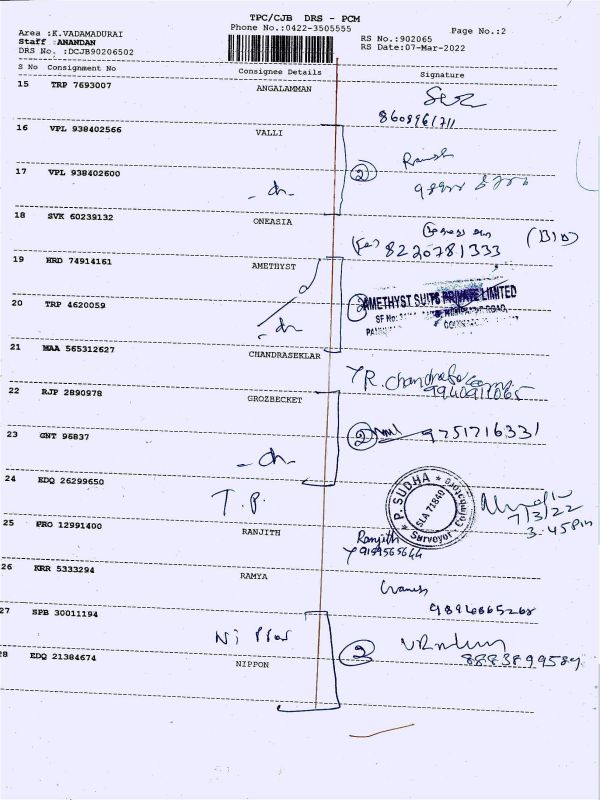 TPC/CJB DRS - PCM
Phone No.:0422-3505555
Page No.:2
Area :K.VADAMADURAI
Staff :ANANDAN
DRS No. :DCJB90206502
RS No.:902065
RS Date:07-Mar-2022
S No Consignment No Consignee Details Signature
15 TRP 7693007 ANGALAMMAN
8608961711
16 VPL 938402566 VALLI
2
17 VPL 938402600
18 SVK 60239132 ONEASIA
8220781333
19 HRD 74914161 AMETHYST
2 AMETHYST SUITS PRIVATE LIMITED
SF No:
20 TRP 4620059
21 MAA 565312627 CHANDRASEKLAR
R. Chandrasekar
22 RJP 2890978 GROZBECKET
2 9751716331
23 GNT 96837
24 EDQ 26299650 T.P.
P. SUDHA
SLA 71840
Surveyor - Coimbatore
7/3/22
3.45pm
25 PRO 12991400 RANJITH
Ranjith
9159565644
26 KRR 5333294 RAMYA
9894665268
27 SPB 30011194 Nippon
2
8883899589
28 EDQ 21384674 NIPPON